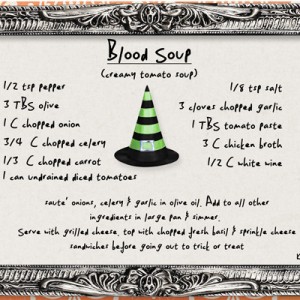 Blood Soup
(creamy tomato soup)
1/2 tsp pepper
3 TBS olive
1 C chopped onion
3/4 C chopped celery
1/3 C chopped carrot
1 can undrained diced tomatoes
1/8 tsp salt
3 cloves chopped garlic
1 TBS tomato paste
3 C chicken broth
1/2 C white wine
saute' onions, celery & garlic in olive oil. Add to all other
ingredients in large pan & simmer.
Serve with grilled cheese, top with chopped fresh basil & sprinkle cheese
sandwiches before going out to trick or treat